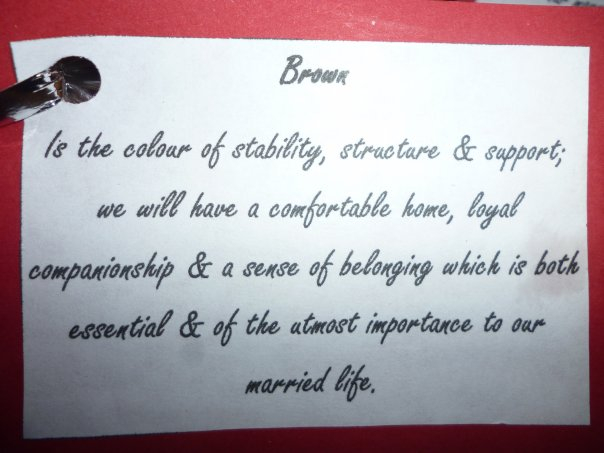 Brown
Is the colour of stability, structure & support;
we will have a comfortable home, loyal
companionship & a sense of belonging which is both
essential & of the utmost importance to our
married life.